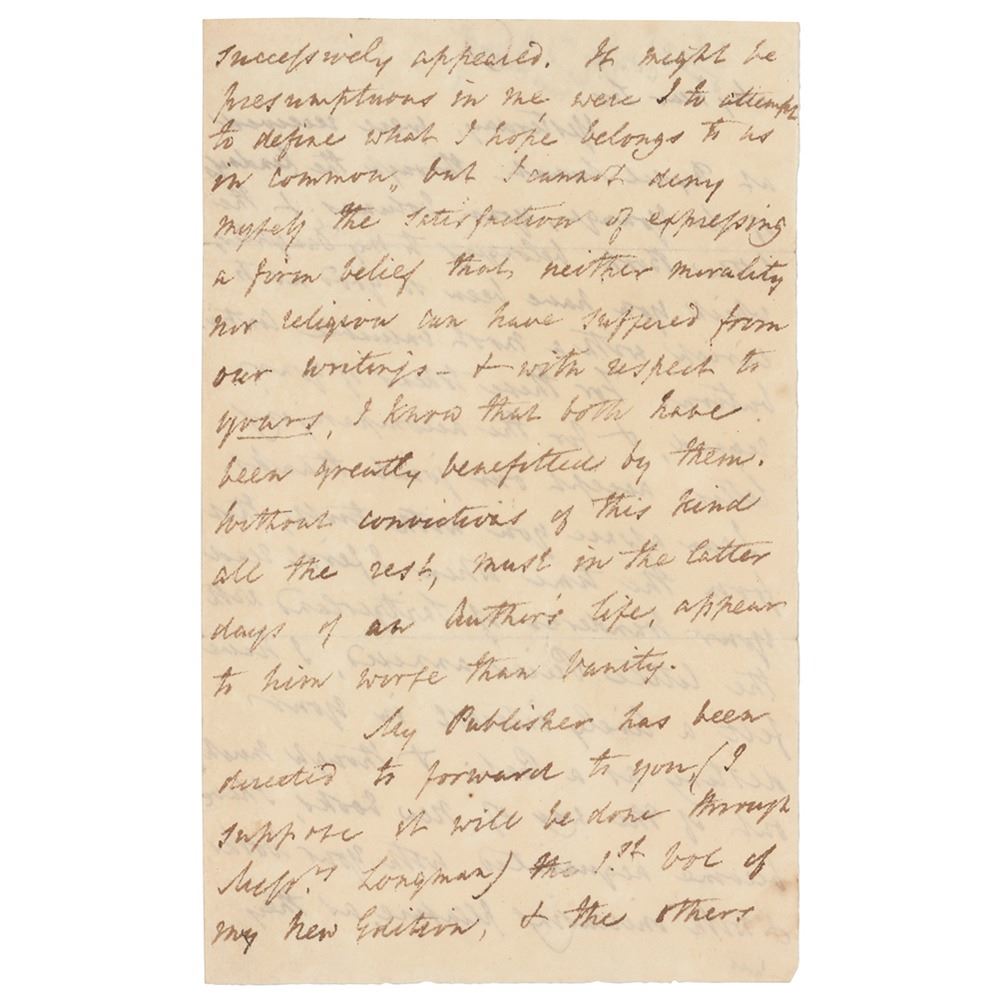 successively appeared. It might be
presumptuous in me were I to attempt
to define what I hope belongs to us
in common, but I cannot deny
myself the satisfaction of expressing
a firm belief that neither morality
nor religion can have suffered from
our writings – & with respect to
yours, I know that both have
been greatly benefitted by them.
Without convictions of this kind
all the rest, must in the latter
days of an Author's life, appear
to him worse than Vanity.
My Publisher has been
directed to forward to you, (I
suppose it will be done through
Messrs. Longman) the 1st vol of
my New Edition, & the others